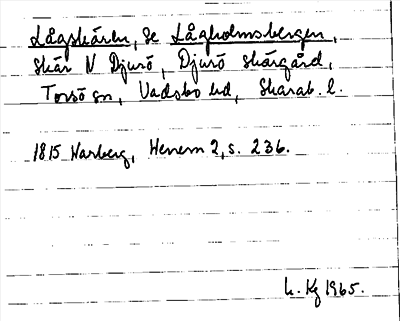 Lågskären, Se Lågholmsbergen,
skär N Djurö, Djurö skärgård,
Torsö sn, Vadsbo hd, Skarab. l.
1815 Warberg, Venern 2, s. 236.
L. Kg 1965.